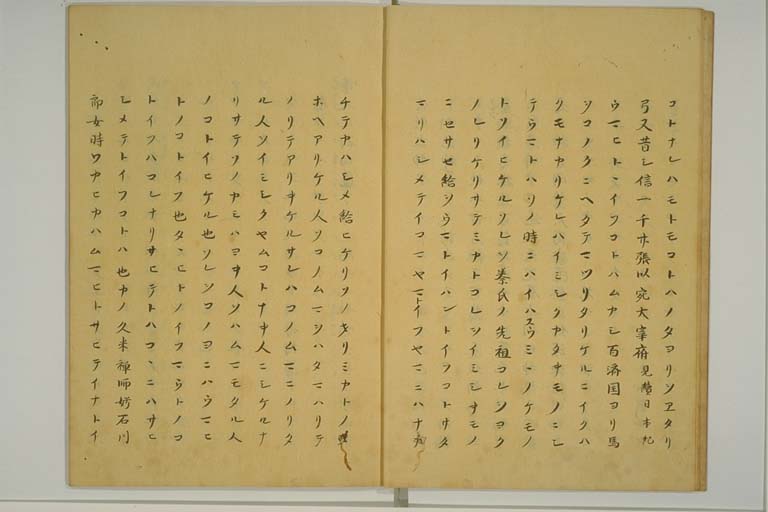 コトナレハモトモコトハノタヨリソヱタリ
弓又昔シ信一千サ張以宛大宰府見賛日本紀
ウマヒトヽイフコトハムカシ百済国ヨリ馬
ソコノクニヘタテマツリタリケルニイクハ
クモナカリケレハイミシクカタサモノニシ
テウマトハソノ時ニハイハスウミヽノケモノ
トソイヒケルソレソ秦氏ノ先祖コレシヨク
ノレリケリサテミカトコレシイミシサモノ
ニセサセ給シウマトイハントイフコトサタ
マリハシメテイコマヤマトイフヤマニハナ
チテカハシメ給ヒケリソノキリミカトノ
ホヘアリケル人ソコノムマシハタマハリテ
ノリテアリヰケルサレハコノムマニノリタ
ル人ソイミシクヤムコトナキ人ニシケルナ
リサテソノカミハヨキ人ソハムマモタル人
ノコトイヒケル也ソレソコノヨニハウマヒ
トノコトイフ也タヽヒトノイフマウトノコ
トイフハコレナリサヒテトハコヽニハサヒ
シメテトイフコトハ也カノ久米禅師娉石川
郎女時ワカヒカハムマヒトサヒテイナトイ